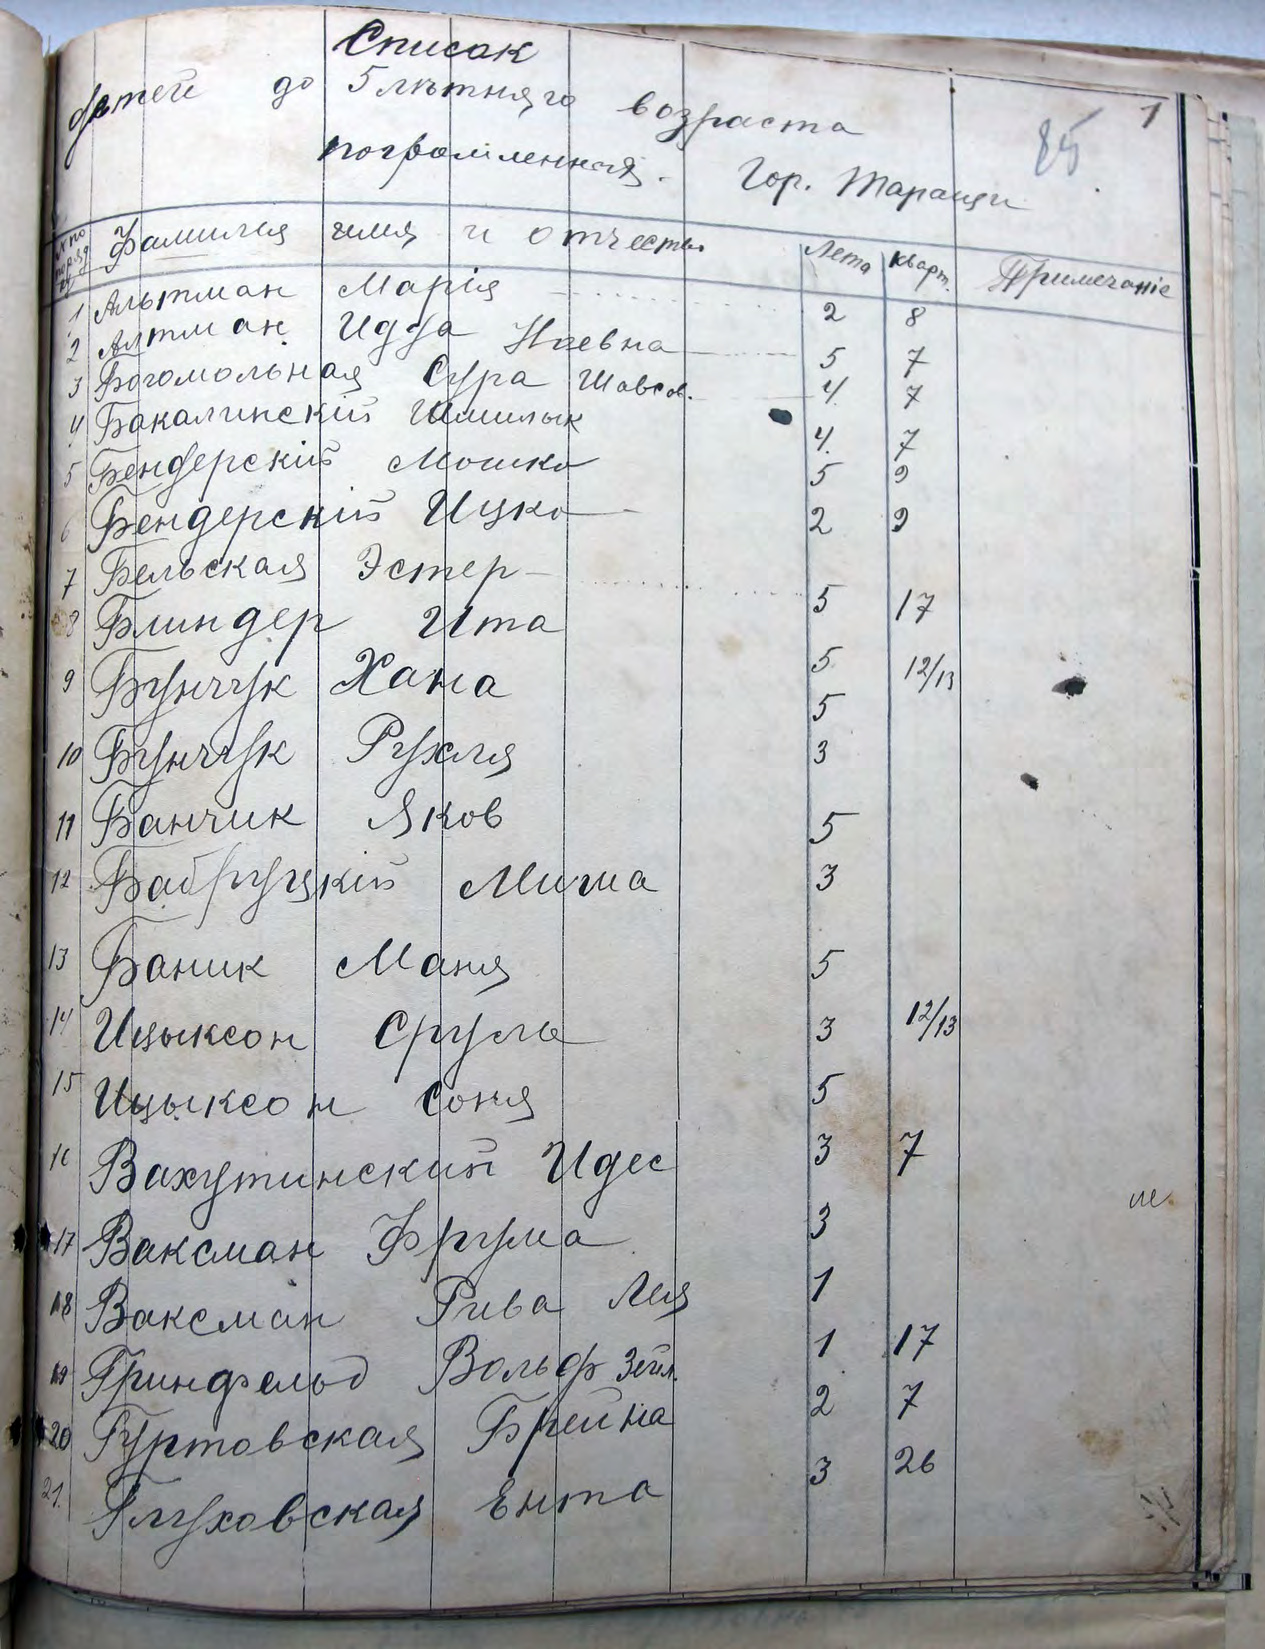 Список
детей до 5 лѣтняго возраста 1
85
погромленная. Гор. Таращи
№ по порядку Фамилия имя и отчество Лета Кварт. Примечаніе
1 Альтман Марія 2 8
2 Алтман Идда Ноевна 5 7
3 Богомольная Сура Шовсов. 4 7
4 Бакалинскій Шмилык 4 7
5 Бендерскій Мошко 5 9
6 Бендерскій Ицко 2 9
7 Бельская Эстер 5 17
8 Блиндер Ита 5 12/13
9 Бунчук Хана 5
10 Бунчук Рухля 3
11 Банчик Яков 5
12 Бабруцкій Миша 3
13 Баник Маня 5
14 Ицыксон Сруль 3 12/13
15 Ицыксон Соня 5
16 Вахутинский Идес 3 7
17 Ваксман Фрума 3
18 Ваксман Рива Лея 1
19 Гринфельд Вольф Зейл. 1 17
20 Гуртовская Брейна 2 7
21. Глуховская Ента 3 26